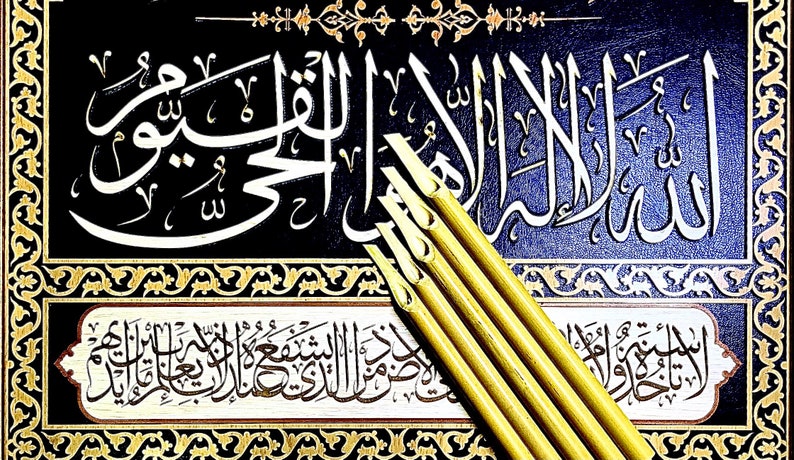 اللّهُ لا إلهَ إلّا هو الحيُّ القيّومُ
لا تأخذه سنة ولا الأرض من ذا الذي يشفع عنده إلا بإذنه يعلم ما بين أيديهم